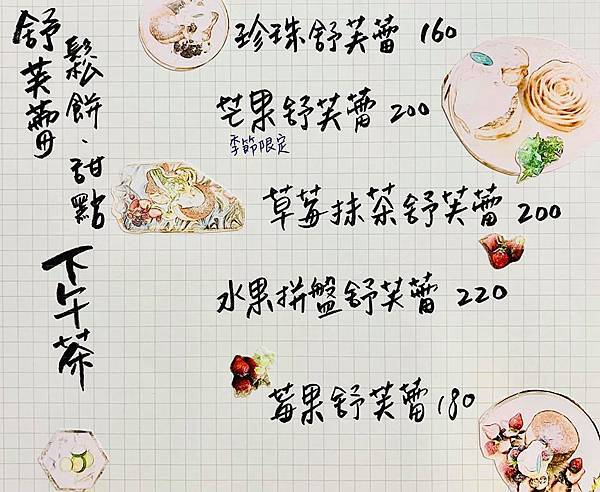 舒芙蕾
鬆餅、甜點
下午茶
珍珠舒芙蕾 160
芒果舒芙蕾 200
季節限定
草莓抹茶舒芙蕾 200
水果拼盤舒芙蕾 220
莓果舒芙蕾 180